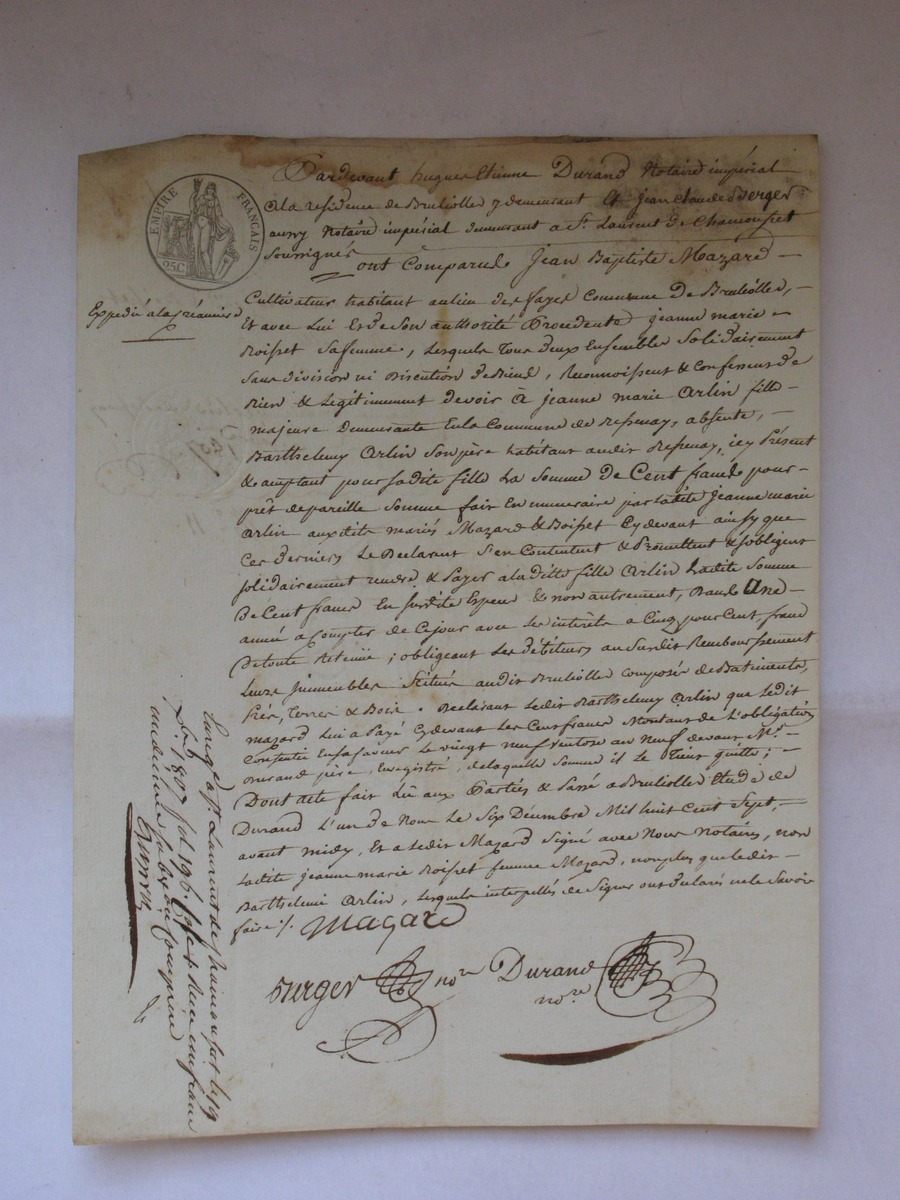 EMPIRE FRANÇAIS
25C
Pardevant hugues Etienne Durand Notaire impérial
a la residence de Brulliolles y demeurant Et jean claude Berger
aussy Notaire impérial demeurant a St. Laurent De Chamousset
Soussignés
ont Comparus Jean Baptiste Mazard
Expedié a la
Cultivateur habitant au lieu des fayes Commune De Brulliolles,
Et avec Lui Et de Son authorité Procedente jeanne marie
Boisset Sa femme, Lesquels Tous deux Ensembles Solidairement
Sans division ni Discution de Biens, Reconnoissent & Confessent
Bien & Legitimement devoir à jeanne marie Arlin fille
majeure Demeurante En la Commune de absente,
Barthelemy Arlin Son père habitant audit icy Présent
& acceptant pour Sadite fille La Somme De Cent francs pour
prêt de pareille Somme fait En numeraire par ladite Jeanne marie
Arlin auxdits mariés Mazard & Boisset Cydevant ainsy que
Ces derniers Le Declarent S'en Contentent & Promettent & s'obligent
solidairement rendre & Payer a laditte fille Arlin Ladite Somme
De Cent francs En Susdite Espece & non autrement, Dans Une
année a Compter de Cejour avec Les interêts a Cinq pour Cent franc
De toute Retenue ; obligeant Les débiteurs au Susdit Remboursement
Leurs Immeubles Scitués audit Brulliolle Composés de Batiments,
Prés, Terres & Bois. Declarant Ledit Barthelemy Arlin que Ledit
mazard Lui a Payé Cydevant Les Cent francs Montant de L'obligation
Consentie En Sa faveur Le vingt neuf ventose an Neuf devant Me.
Durand père, Enregistré, de laquelle Somme il Le Tient quitte ;
Dont acte fait Lû aux Parties & Passé a Brulliolles Etude de
Durand L'un de Nous Le Six Décembre Mil huit Cent Sept,
avant midy, Et a Ledit Mazard Signé avec Nous Notaires, non
Ladite Jeanne marie Boisset femme Mazard, non plus que Ledit
Barthelemi Arlin, Lesquels interpellés de Signer ont Declaré ne le Savoir
faire ./.
Mazard
Berger nore Durand
nore
a St. Laurent de Chamousset le 19
1807 fol 196